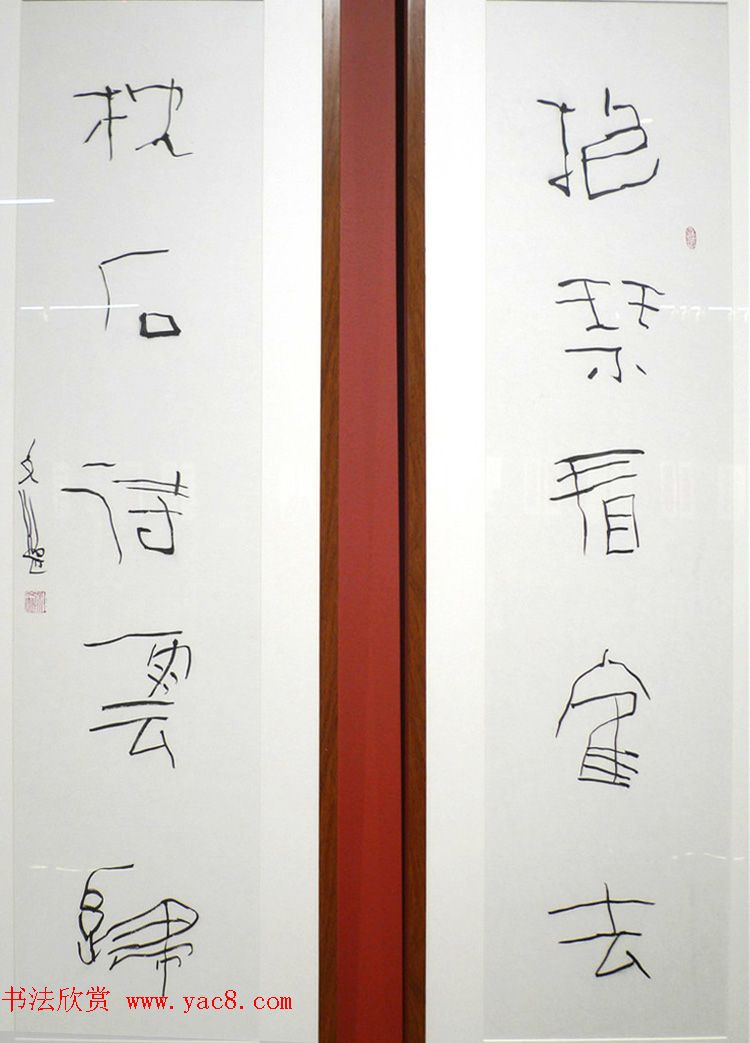 抱琴看隺去
枕石待雲歸
书法欣赏 www.yac8.com